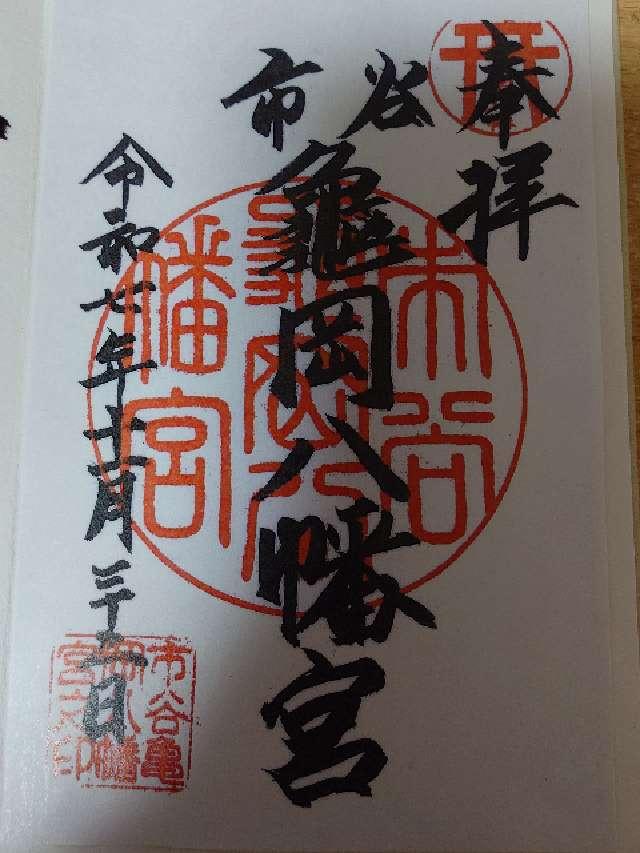 奉拝
市谷
龜岡八幡宮
令和七年十月三十一日
市谷
龜岡八
幡宮
市谷亀
岡八幡
宮之印